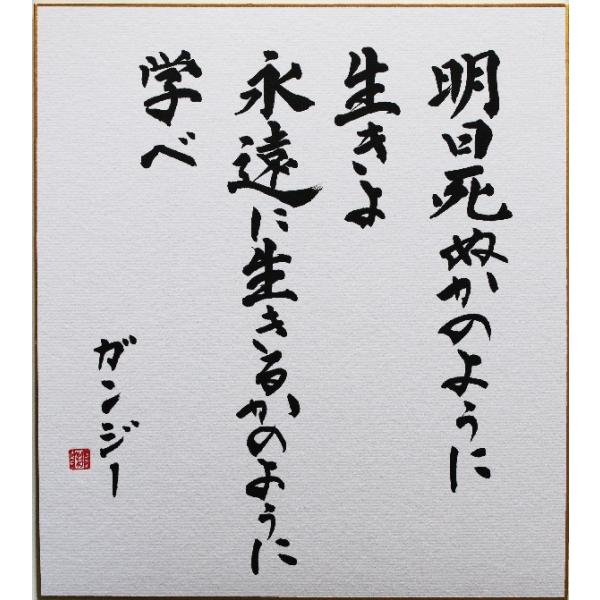 明日死ぬかのように
生きよ
永遠に生きるかのように
学べ
ガンジー